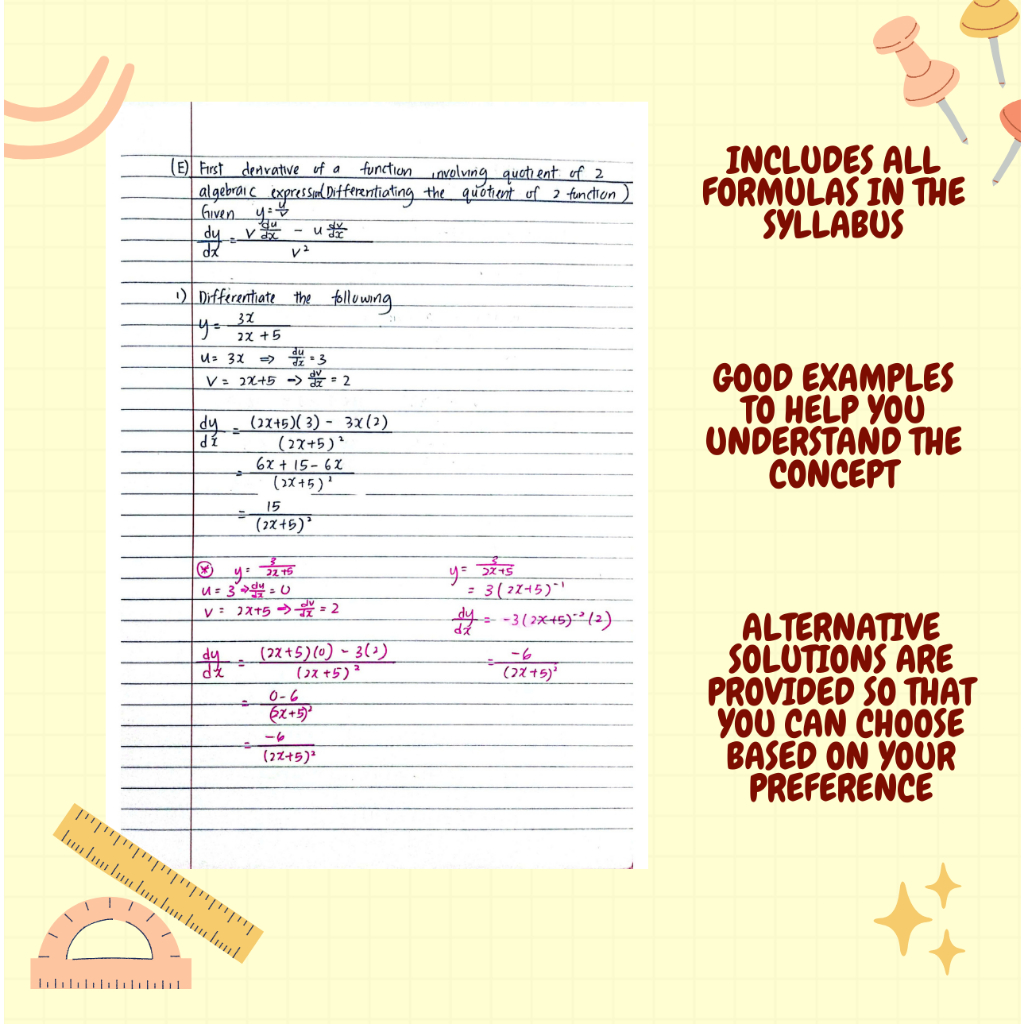 (E) First derivative of a function involving quotient of 2
algebraic expression (Differentiating the quotient of 2 function)
Given y = u/v
dy/dx = (v du/dx - u dv/dx) / v²
1) Differentiate the following
y = 3x / (2x + 5)
u = 3x ⇒ du/dx = 3
v = 2x+5 → dv/dx = 2
dy/dx = ((2x+5)(3) - 3x(2)) / (2x+5)²
= (6x + 15 - 6x) / (2x+5)²
= 15 / (2x+5)²
* y = 3 / (2x+5)
u = 3 → du/dx = 0
v = 2x+5 → dv/dx = 2
dy/dx = ((2x+5)(0) - 3(2)) / (2x+5)²
= (0-6) / (2x+5)²
= -6 / (2x+5)²
y = 3 / (2x+5)
= 3(2x+5)⁻¹
dy/dx = -3(2x+5)⁻²(2)
= -6 / (2x+5)²
INCLUDES ALL
FORMULAS IN THE
SYLLABUS
GOOD EXAMPLES
TO HELP YOU
UNDERSTAND THE
CONCEPT
ALTERNATIVE
SOLUTIONS ARE
PROVIDED SO THAT
YOU CAN CHOOSE
BASED ON YOUR
PREFERENCE